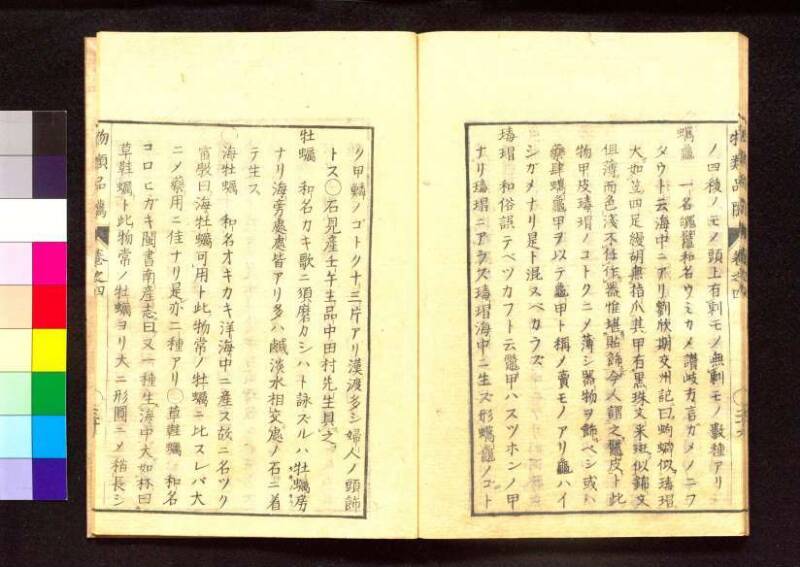 ノ四種ノモノ頭上有刺モノ無刺モノ數種アリ
蠵龜 一名𪓟鼊和名ウミカメ讃岐方言ガメノニフ
タウト云海中ニアリ劉欣期交州記曰蚼蟕似瑇瑁
大如笠四足縵胡無指爪其甲有黒珠文采斑似錦文
但薄而色淺不任作噐惟堪貼飾今人謂之鼊皮ト此
物甲皮瑇瑁ノコトクニメ薄シ器物ヲ飾ベシ或ハ
藥肆蠵龜甲ヲ以テ龜甲ト稱ノ賣モノアリ龜ハイ
シガメナリ是ト混スベカラズ
瑇瑁 和俗誤テベツカフト云鼈甲ハスツホンノ甲
ナリ瑇瑁ニアラズ瑇瑁海中ニ生ズ形蠵龜ノゴト
ク甲鱗ノゴトク十三片アリ漢渡多シ婦人ノ頭飾
トス〇石見産壬午主品中田村先生具之
牡蠣 和名カキ歌ニ須磨カシハト詠ズルハ牡蠣房
ナリ海旁處處皆アリ多ハ鹹淡水相交處ノ石ニ着
テ生ス
海牡蠣 和名オキカキ洋海中ニ産ス故ニ名ツク
雷斅曰海牡蠣可用ト此物常ノ牡蠣ニ比スレバ大
ニメ藥用ニ佳ナリ是亦二種アリ〇草鞋蠣 和名
コロヒガキ閩書南産志曰又一種生海中大如杯曰
草鞋蠣ト此物常ノ牡蠣ヨリ大ニ形圓ニメ稍長シ
物類品隲 卷之四